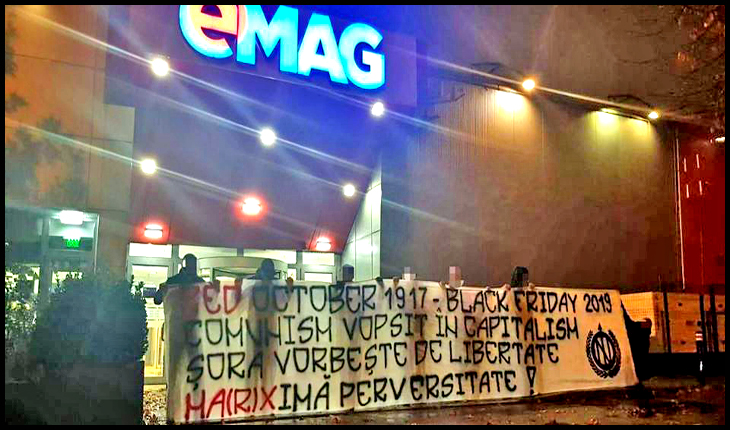 eMAG
RED OCTOBER 1917 - BLACK FRIDAY 2019
COMUNISM VOPSIT ÎN CAPITALISM
ȘORA VORBEȘTE DE LIBERTATE
MA(R)XIMĂ PERVERSITATE!